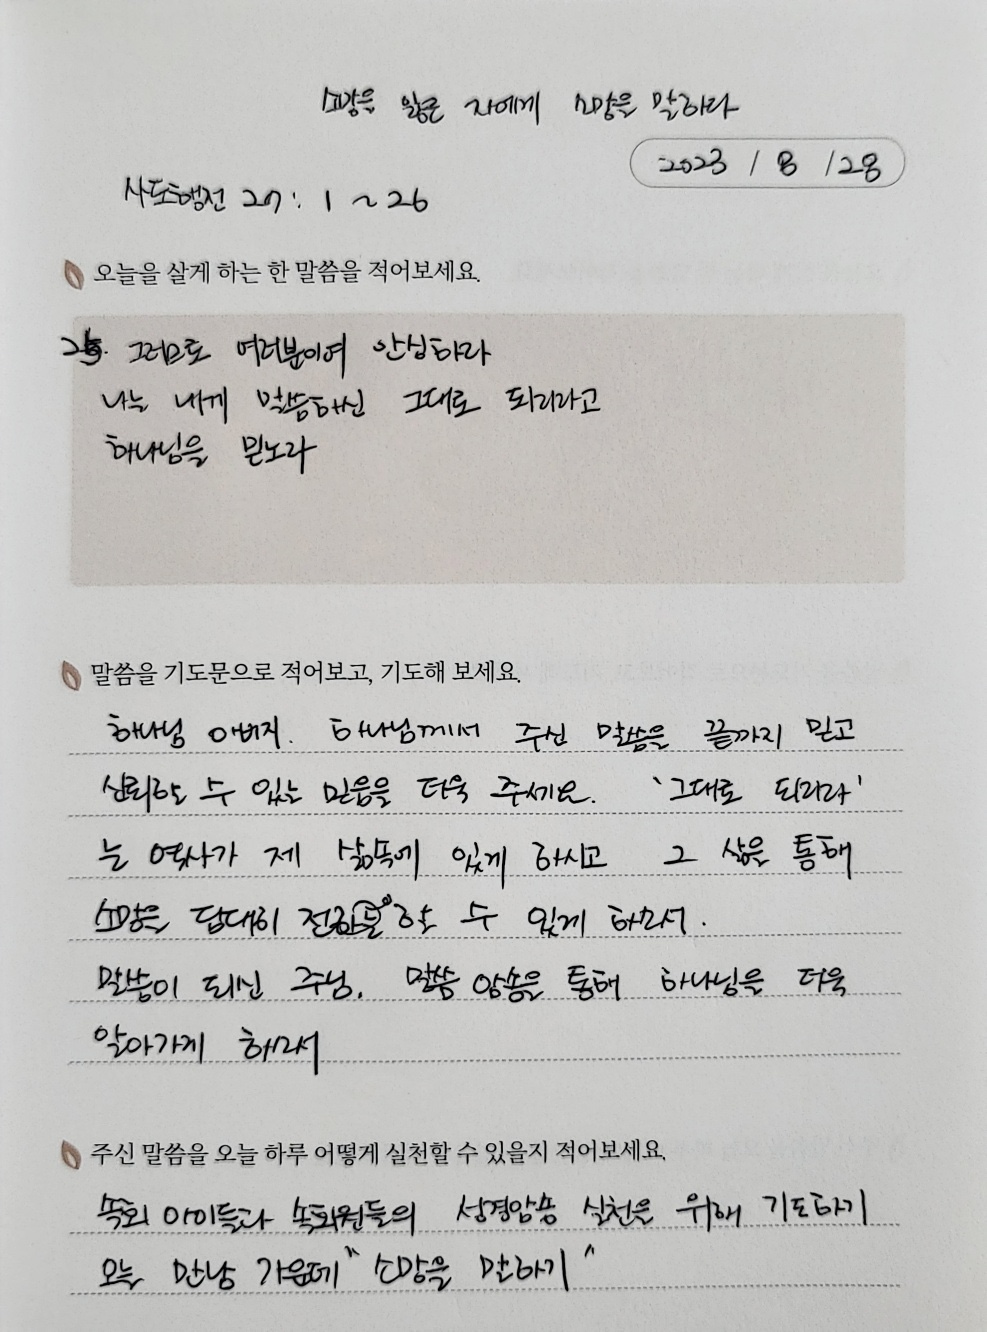 소망을 잃은 자에게 소망을 말하라
2023 / 8 / 28
사도행전 27 : 1 ~ 26
오늘을 살게 하는 한 말씀을 적어보세요.
25. 그러므로 여러분이여 안심하라
나는 내게 말씀하신 그대로 되리라고
하나님을 믿노라
말씀을 기도문으로 적어보고, 기도해 보세요.
하나님 아버지. 하나님께서 주신 말씀을 끝까지 믿고
신뢰하는 수 있는 믿음을 더욱 주세요. '그대로 되리라'
는 역사가 제 삶속에 있게 하시고 그 삶을 통해
소망을 담대히 전할 수 있게 하소서.
말씀이 되신 주님. 말씀 암송을 통해 하나님을 더욱
알아가게 하소서
주신 말씀을 오늘 하루 어떻게 실천할 수 있을지 적어보세요.
속회 아이들과 속회원들의 성경암송 실천을 위해 기도하기
오늘 만남 가운데 "소망을 말하기"